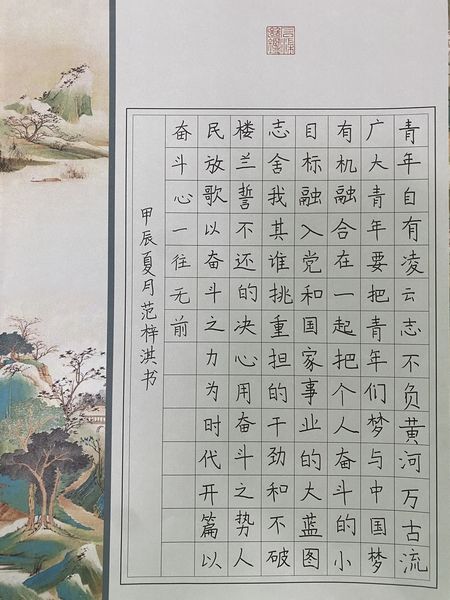 青年自有凌云志不负黄河万古流
广大青年要把青年们梦与中国梦
有机融合在一起把个人奋斗的小
目标融入党和国家事业的大蓝图
志舍我其谁挑重担的干劲和不破
楼兰誓不还的决心用奋斗之势人
民放歌以奋斗之力为时代开篇以
奋斗心一往无前
甲辰夏月范梓洪书